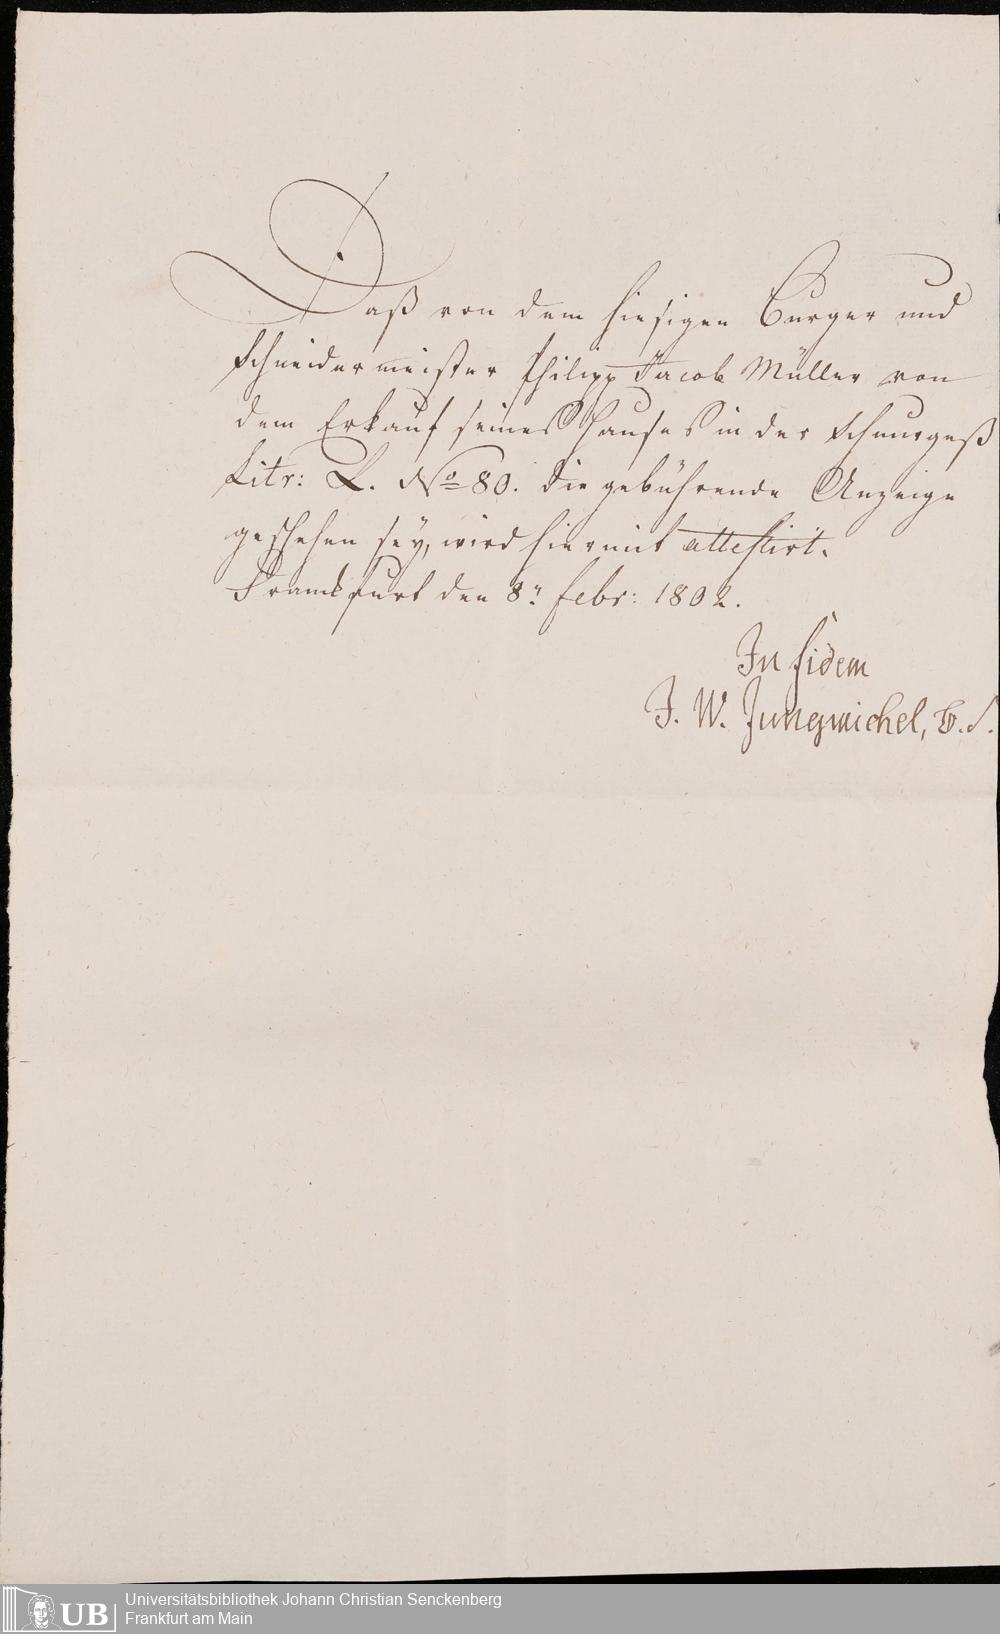 Daß von dem hiesigen Burger und
Schneidermeister Philipp Jacob Müller von
dem Erkauf seines Hauses in der Schnurgeß
Litr: L. No 80. die gebührende Anzeige
geschehen sey, wird hiermit attestirt.
Frankfurt den 8n. Febr: 1802.
In fidem
J. W. Jungmichel, B. S.
UB
Universitätsbibliothek Johann Christian Senckenberg
Frankfurt am Main